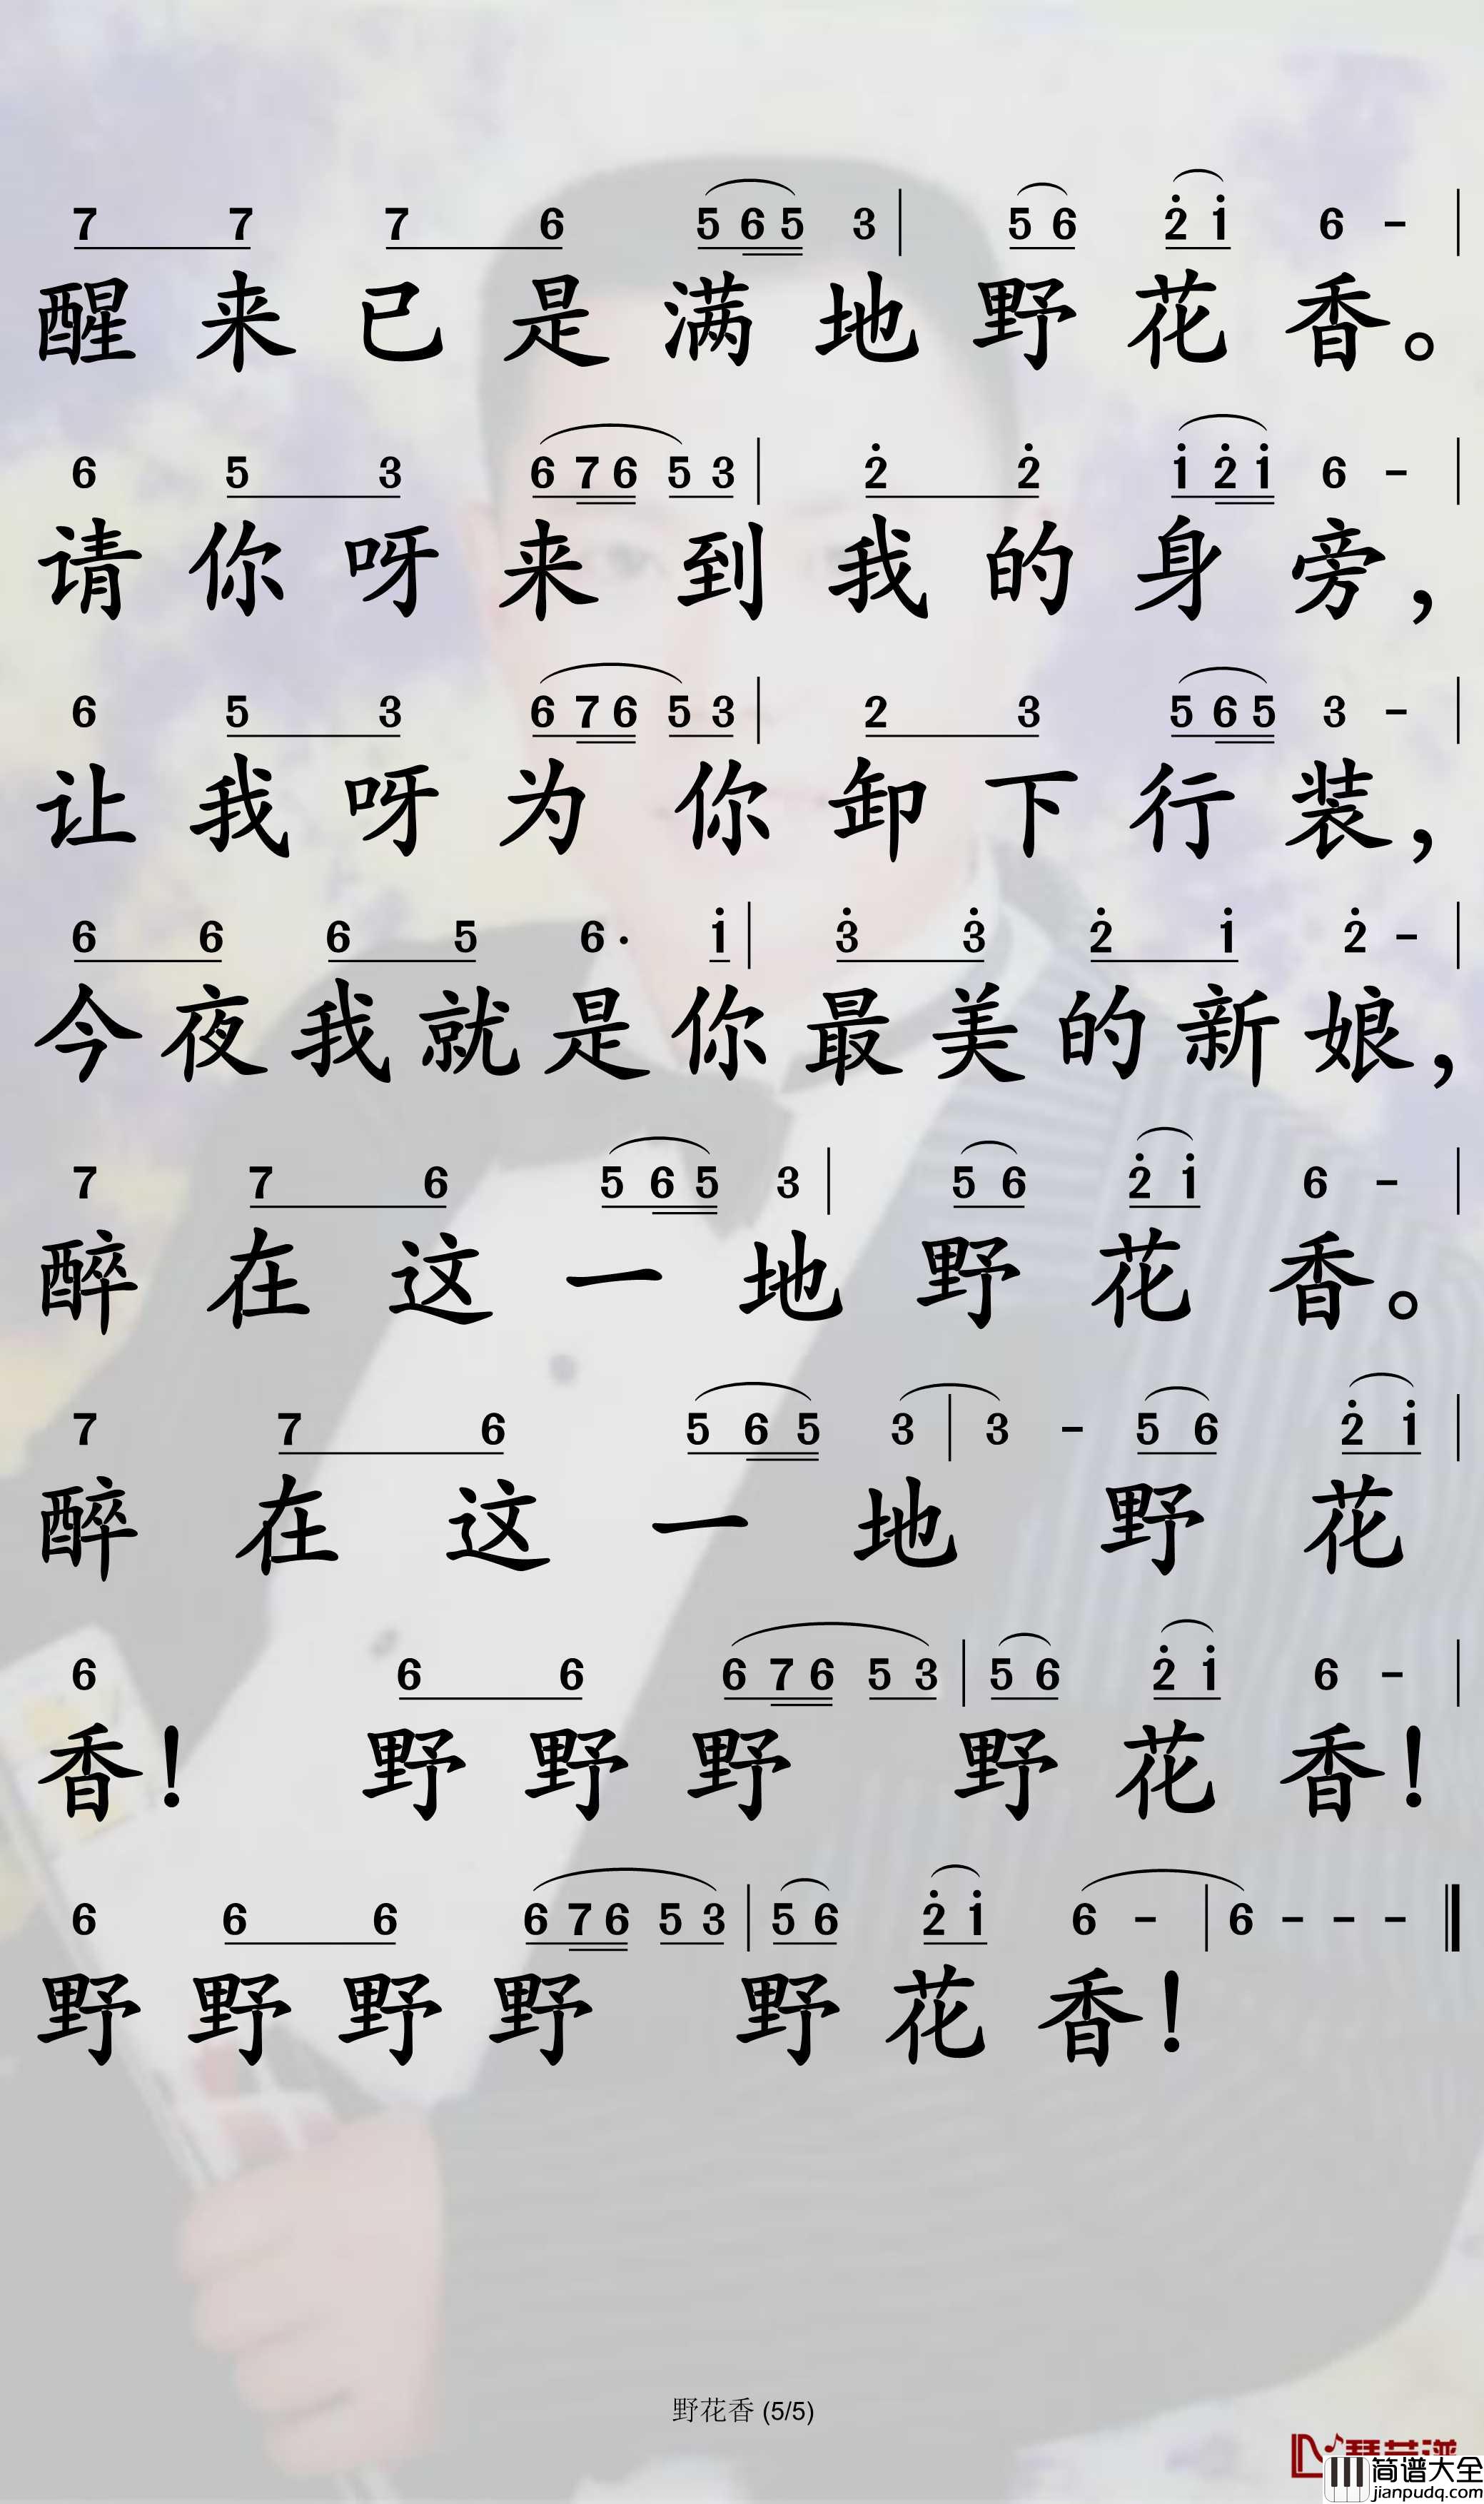 7 7 7 6 5 6 5 3 | 5 6 2̇ 1̇ 6 - |
醒来已是满地野花香。
6 5 3 6 7 6 5 3 | 2̇ 2̇ 1̇ 2̇ 1̇ 6 - |
请你呀来到我的身旁，
6 5 3 6 7 6 5 3 | 2 3 5 6 5 3 - |
让我呀为你卸下行装，
6 6 6 5 6· 1̇ | 3̇ 3̇ 2̇ 1̇ 2̇ - |
今夜我就是你最美的新娘，
7 7 6 5 6 5 3 | 5 6 2̇ 1̇ 6 - |
醉在这一地野花香。
7 7 6 5 6 5 3 | 3 - 5 6 2̇ 1̇ |
醉在这一地野花
6 6 6 6 7 6 5 3 | 5 6 2̇ 1̇ 6 - |
香！ 野野野 野花香！
6 6 6 6 7 6 5 3 | 5 6 2̇ 1̇ 6 - | 6 - - - ‖
野野野野 野花香！
野花香 (5/5)
简谱大全
jianpudq.com